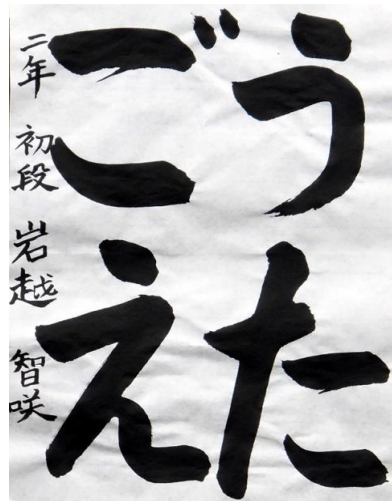 うた
ごえ
二年 初段 岩越 智咲